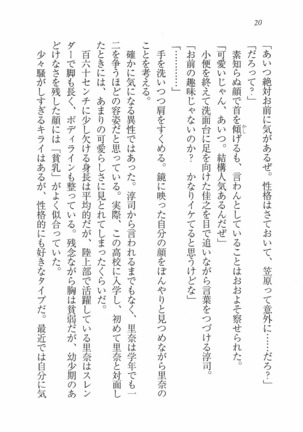 20
「あいつ絶対お前に気があるぜ。性格はさておいて、笠原って意外に……だろ？」
「だろって？」
素知らぬ顔で首を傾げるも、言わんとしていることはおおよそ察せられた。
「可愛いじゃん、あいつ。結構人気あるんだぜ」
小便を終えて洗面台に足を向けた佳之を目で追いながら言葉をつづける淳司。
「お前の趣味じゃないのか？　かなりイケてると思うけどな」
「………」
手を洗いつつ肩をすくめる。鏡に映った自分の顔をぼんやりと見つめながら里奈の
ことを考える。
確かに気になる異性ではあった。淳司から言われるまでもなく、里奈は学年でも一
二を争うほどの容姿だと思っている。実際、この高校に入学し、初めて里奈と対面し
たときには、あまりの可愛らしさに見とれてしまったくらいだ。
百六十センチに少し欠ける身長は平均的だが、陸上部で活躍している里奈はスレン
ダーで脚も長く、ボディラインも整っている。残念ながら胸は貧弱だが、幼少期のあ
どけなさを残した顔には「貧乳」がよく似合っていた。
少々騒がしすぎるキライはあるが、性格的にも好きなタイプだ。最近では自分に気